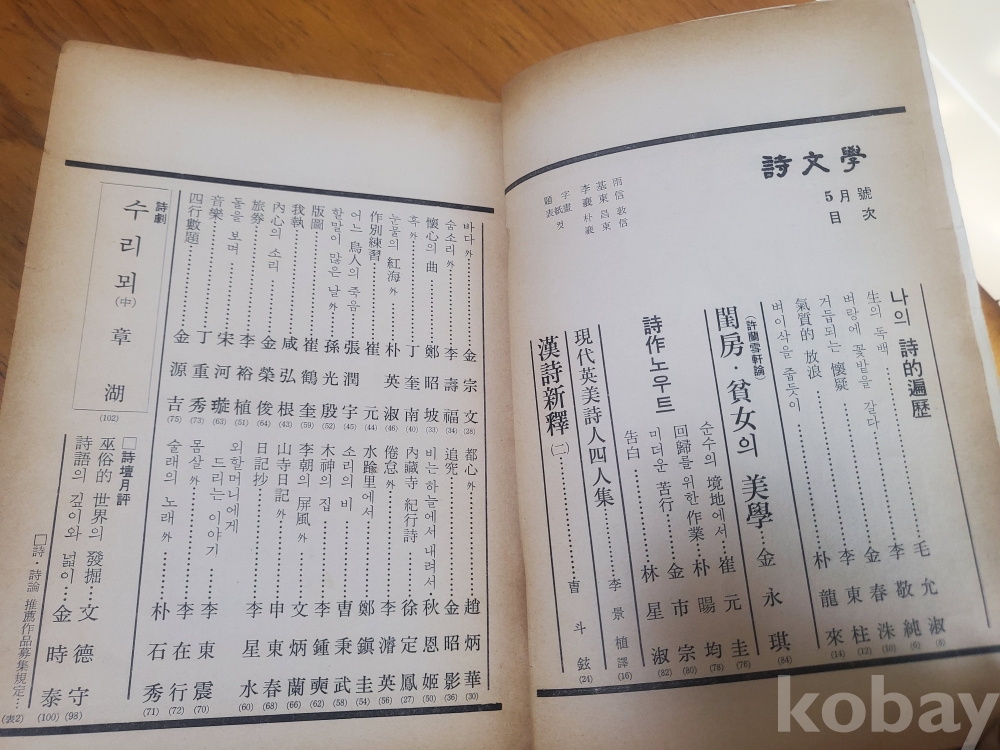 詩文學
5月號
目次
題字
表紙畫
컷
李基雨
襄東信
朴昌敦
襄東信
나의 詩的遍歷
生의 독백……………毛允淑(8)
벼랑에 꽃밭을 갈다……………李敬純(9)
거듭되는 懷疑……………金春洙(10)
氣質的 放浪……………李東柱(12)
벼이삭을 줍듯이……………朴龍來(14)
(許蘭雪軒論)
閨房·貧女의 美學……………金永琪(84)
詩作노우트
순수의 境地에서……………崔元圭(76)
回歸를 위한 作業……………朴陽均(78)
미더운 苦行……………金市宗(80)
告白……………林星淑(82)
現代英美詩人四人集……………李景植譯(16)
漢詩新釋(二)……………曺斗鉉(24)
바다 外……………金宗文(28)
숨소리 外……………李壽福(34)
懷心의 曲……………鄭昭坡(33)
혹 外……………丁奎南(40)
눈물의 紅海 外……………朴英淑(46)
作別練習……………崔元(44)
어느 鳥人의 죽음……………張潤宇(45)
할말이 많은 날 外……………孫光殷(52)
版圖……………崔鶴奎(59)
我執……………咸弘根(42)
內心의 소리……………金榮俊(64)
旅券……………李裕植(61)
돌을 보며……………宋河璇(63)
音樂……………丁重秀(73)
四行數題……………金源吉(75)
都心 外……………趙炳華(30)
追究……………金昭影(36)
비는 하늘에서 내려서……………秋恩姬(50)
內藏寺 紀行詩……………徐定鳳(27)
倦怠 外……………李濬英(56)
水踰里에서……………鄭鎭圭(54)
소리의 비……………曺秉武(58)
木神의 집……………李鍾奭(62)
李朝의 屏風 外……………文炳蘭(66)
山寺日記 外……………申東春(68)
日記抄……………李星水(60)
외할머니에게
드리는 이야기……………李東震(70)
몸살 外……………李在行(72)
술래의 노래 外……………朴石秀(71)
詩劇
수리뫼(中)
章湖
(102)
□詩壇月評
巫俗的 世界의 發掘……文德守(98)
詩語의 깊이와 넓이……金時泰(100)
□詩·詩論 推薦作品募集規定…(表2)
kobay